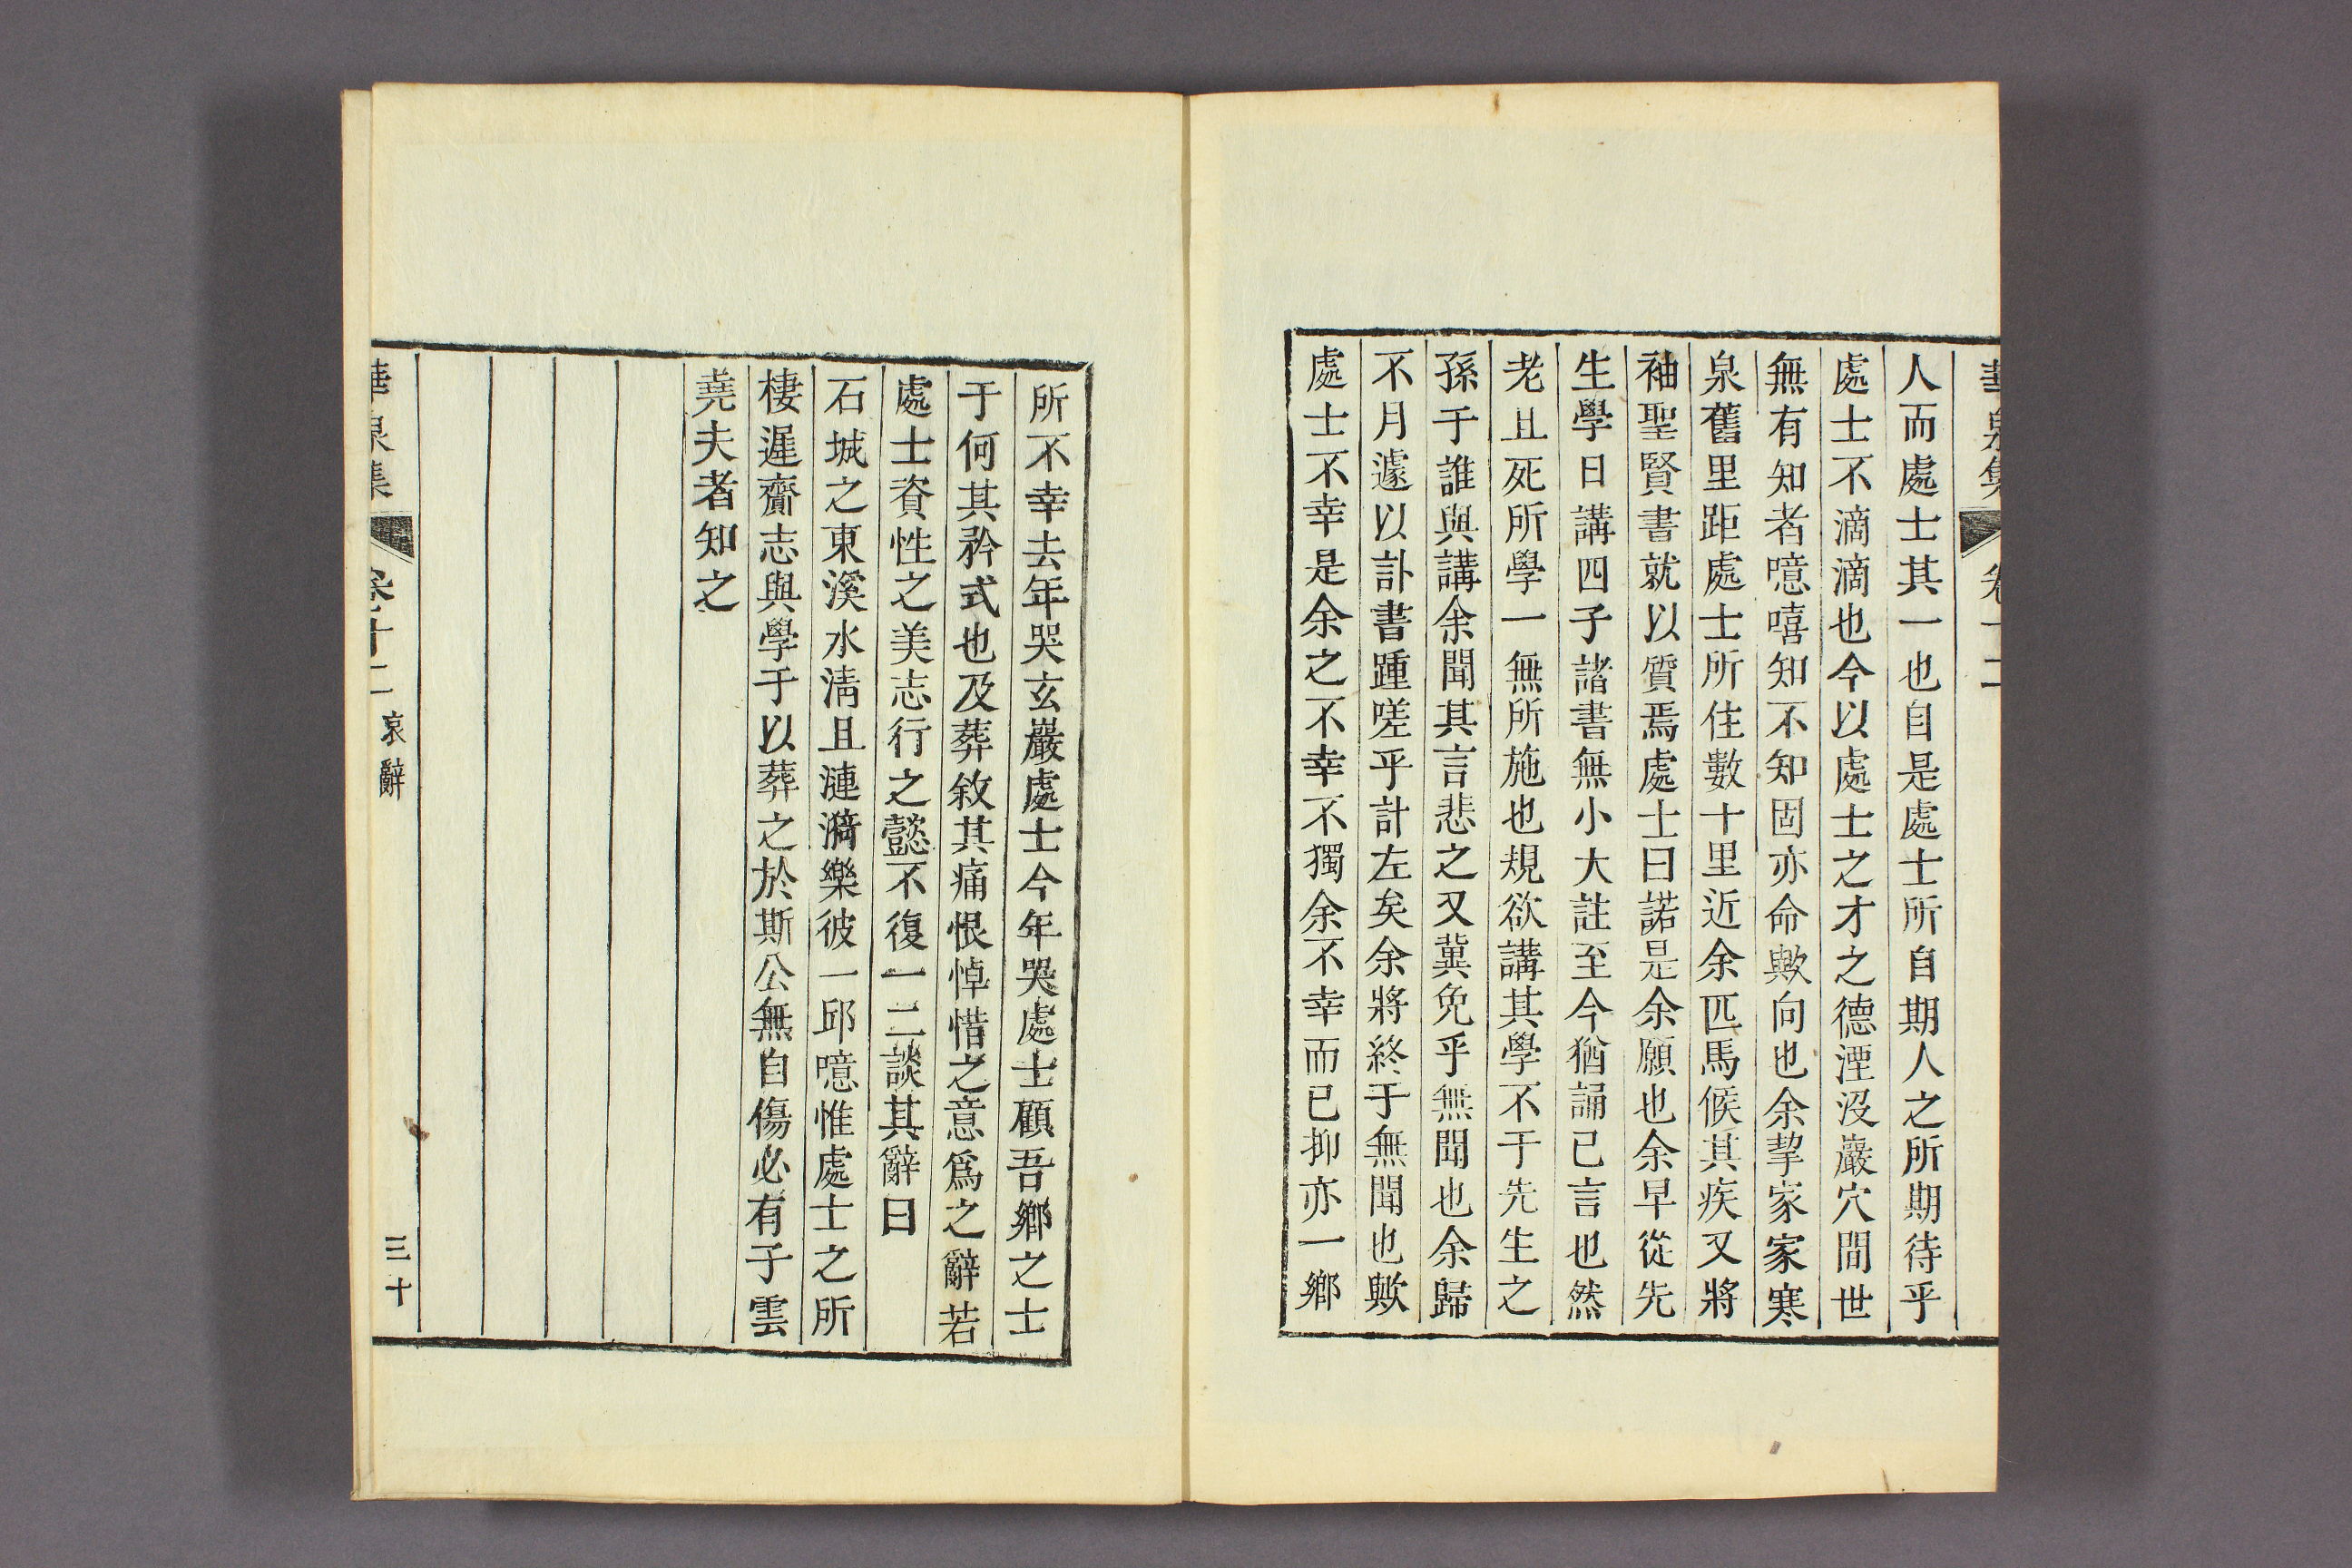 華泉集 卷十二
人而處士其一也自是處士所自期人之所期待乎
處士不滴滴也今以處士之才之德湮沒巖穴間世
無有知者噫嘻知不知固亦命歟向也余挈家家寒
泉舊里距處士所住數十里近余匹馬候其疾又將
袖聖賢書就以質焉處士曰諾是余願也余早從先
生學日講四子諸書無小大註至今猶誦已言也然
老且死所學一無所施也規欲講其學不于先生之
孫于誰與講余聞其言悲之又冀免乎無聞也余歸
不月遽以訃書踵嗟乎計左矣余將終于無聞也歟
處士不幸是余之不幸不獨余不幸而已抑亦一鄉
所不幸去年哭玄巖處士今年哭處士顧吾鄉之士
于何其矜式也及葬敘其痛恨悼惜之意爲之辭若
處士資性之美志行之懿不復一二談其辭曰
石城之東溪水淸且漣漪樂彼一邱噫惟處士之所
棲遲齎志與學于以葬之於斯公無自傷必有子雲
堯夫者知之
華泉集 卷十二 哀辭 三十